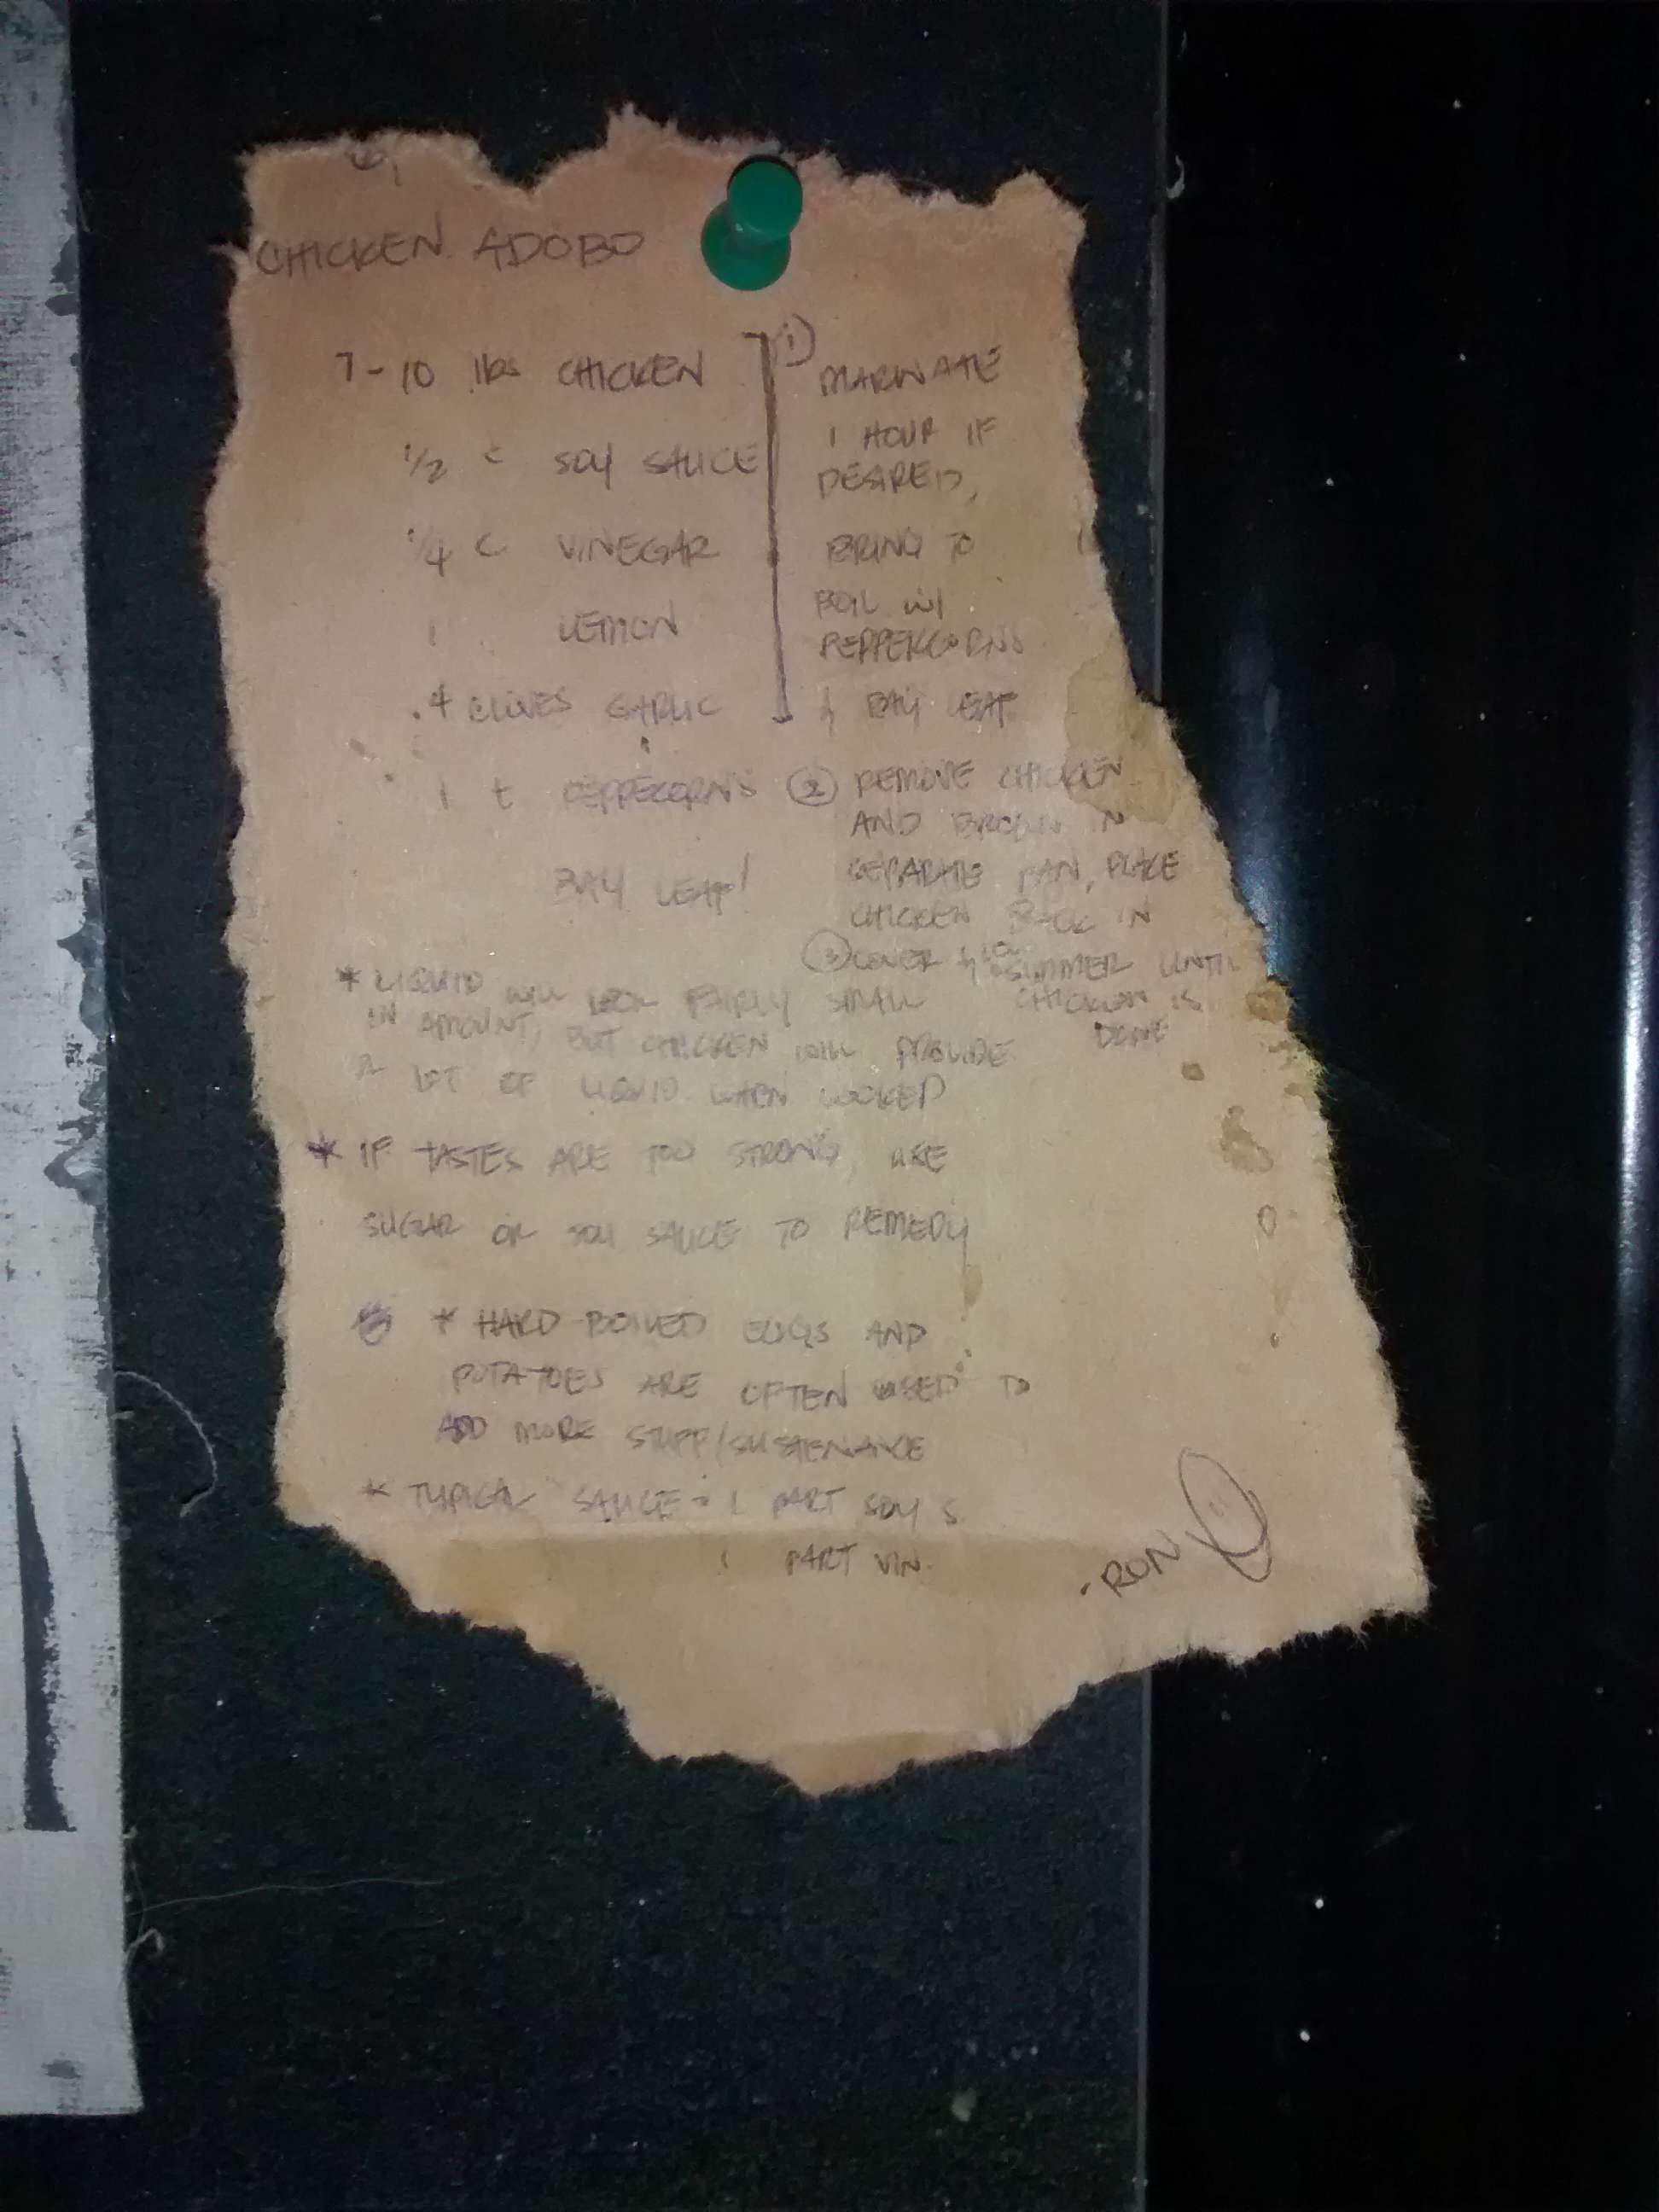 CHICKEN ADOBO
7-10 lbs CHICKEN
1/2 C SOY SAUCE
1/4 C VINEGAR
1 LEMON
4 CLOVES GARLIC
1 t PEPPECORNS
BAY LEAF!
① MARINATE
1 HOUR IF
DESIRED,
BRING TO
BOIL W/
PEPPERCORNS
& BAY LEAF
② REMOVE CHICKEN
AND BROWN IN
SEPARATE PAN, PLACE
CHICKEN BACK IN
③ COVER & SIMMER UNTIL
CHICKEN IS
DONE
* LIQUID WILL LOOK FAIRLY SMALL
IN AMOUNT, BUT CHICKEN WILL PROVIDE
A LOT OF LIQUID WHEN COOKED
* IF TASTES ARE TOO STRONG, USE
SUGAR OR SOY SAUCE TO REMEDY
* HARD BOILED EGGS AND
POTATOES ARE OFTEN USED TO
ADD MORE STUFF/SUSTENANCE
* TYPICAL SAUCE = 1 PART SOY S.
1 PART VIN.
-RON